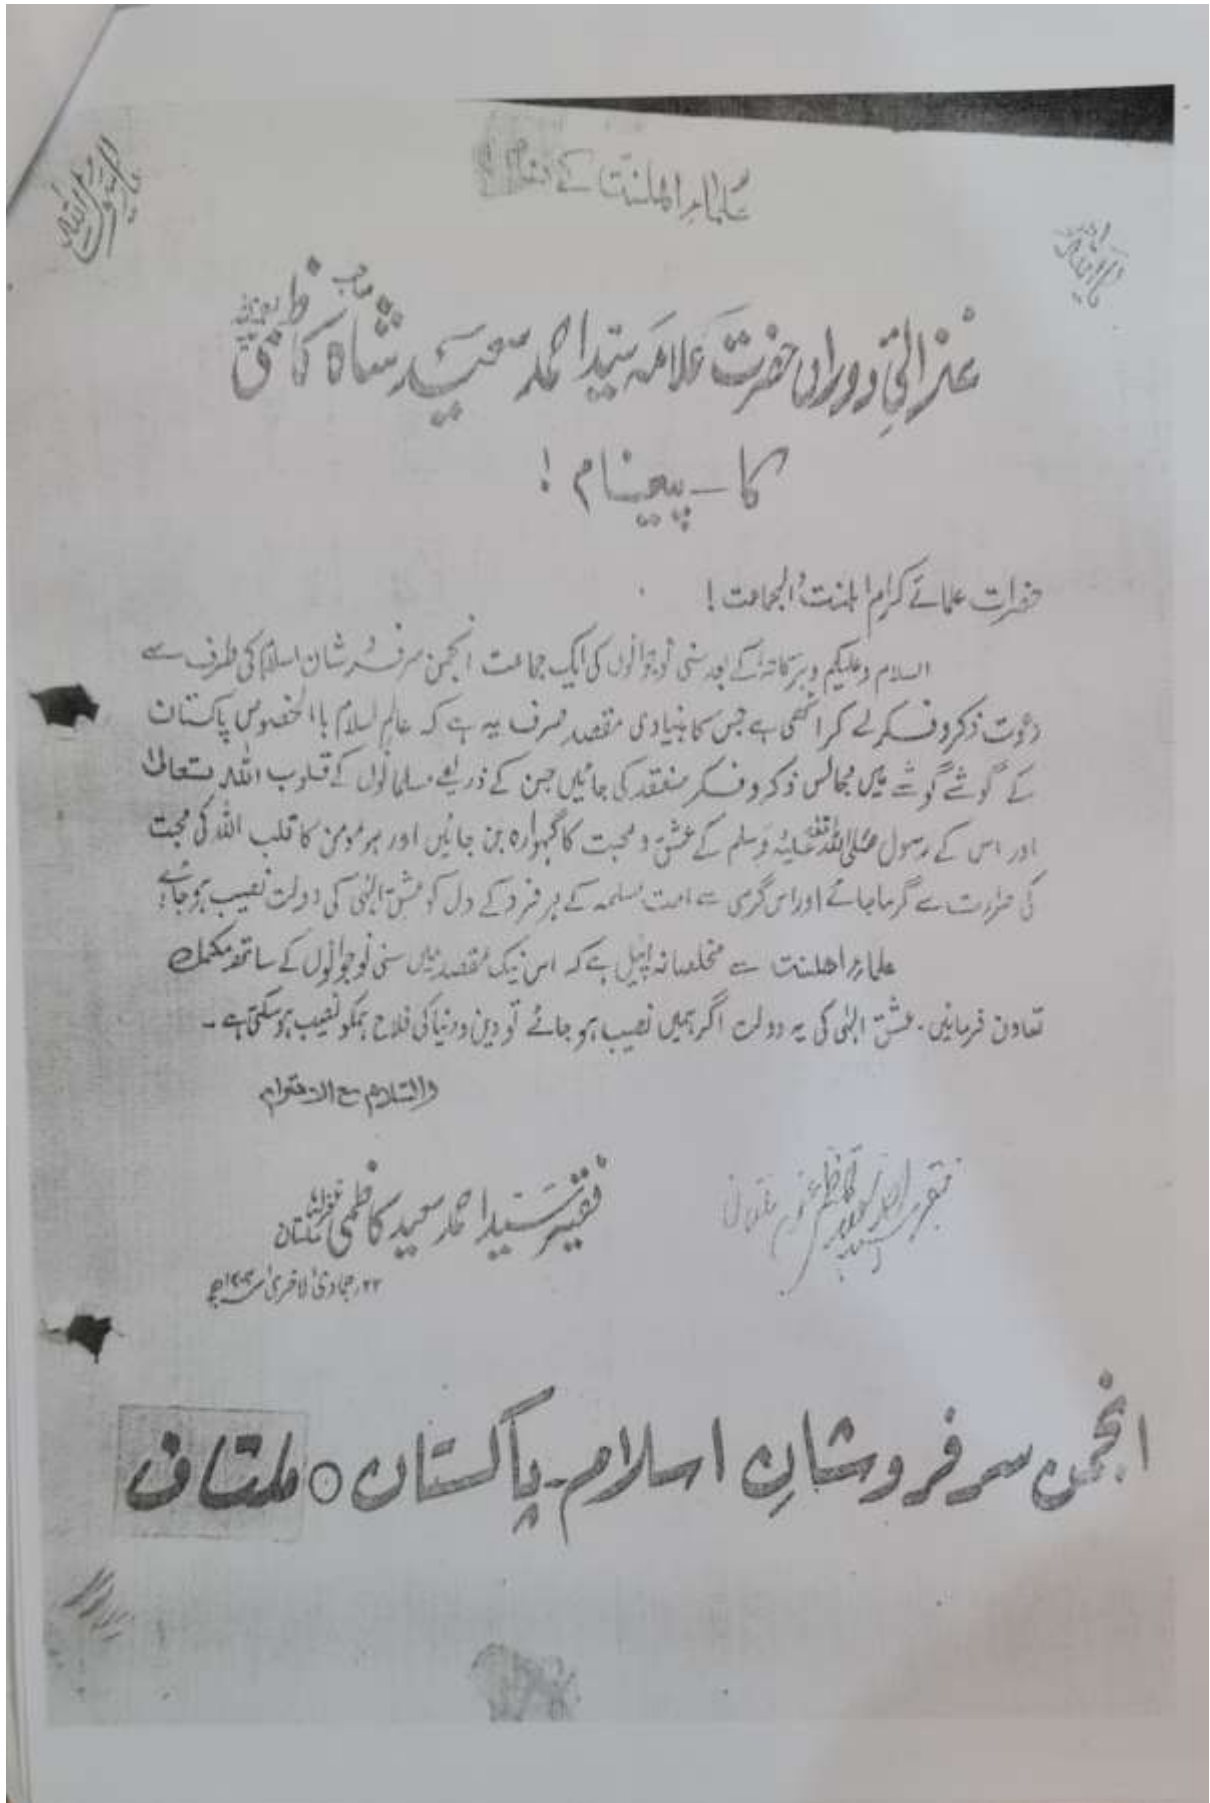 علماءِ اھلسنت کے نام
یا اللہ
یا رسول اللہ
غزالئِ دوراں حضرت علامہ سید احمد سعید شاہ صاحب کاظمی
کا پیغام !
حضرات علمائے کرام اہلسنت والجماعت !
السلام وعلیکم وبرکاتہ کے بعد سنی نوجوانوں کی ایک جماعت انجمن سرفروشان اسلام کی طرف سے
دعوت ذکر و فکر لے کر اٹھی ہے جس کا بنیادی مقصد صرف یہ ہے کہ عالم اسلام باالخصوص پاکستان
کے گوشے گوشے میں مجالس ذکر و فکر منعقد کی جائیں جن کے ذریعے مسلمانوں کے قلوب اللہ تعالیٰ
اور اس کے رسول صلی اللہ علیہ وسلم کے عشق و محبت کا گہوارہ بن جائیں اور ہر مومن کا قلب اللہ کی محبت
کی حرارت سے گرما جائے اور اس گرمی سے امت مسلمہ کے ہر فرد کے دل کو عشق الہٰی کی دولت نصیب ہو جائے
علماءِ اھلسنت سے مخلصانہ اپیل ہے کہ اس نیک مقصد میں سنی نوجوانوں کے ساتھ مکمل
تعاون فرمائیں۔ عشق الہٰی کی یہ دولت اگر ہمیں نصیب ہو جائے تو دین و دنیا کی فلاح ہمکو نصیب ہو سکتی ہے ۔
والسلام مع الاحترام
فقیر سید احمد سعید کاظمی غفرلہ ملتان
۲۲؍ جمادی الاخریٰ
انجمن سرفروشانِ اسلام ۔ پاکستان ○ ملتان